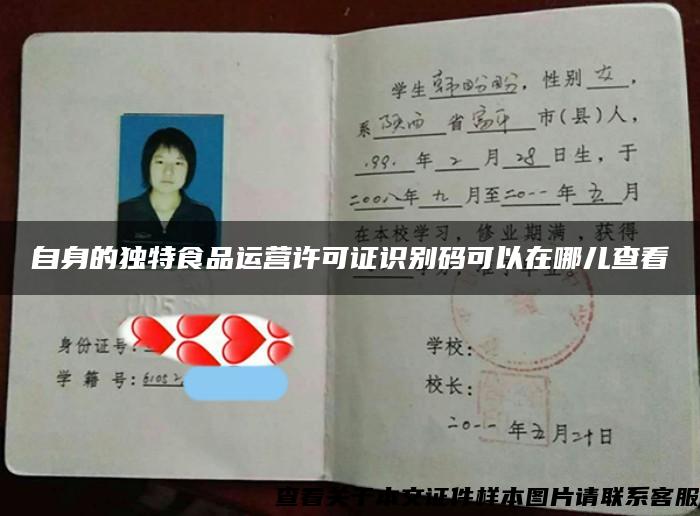 学生韩盼盼，性别女，
系陕西省富平市(县)人，
199.年2月28日生，于
二00八年九月至二0一一年五月
在本校学习，修业期满，获得
自身的独特食品运营许可证识别码可以在哪儿查看
身份证号:
学籍号:61052
学校:
校长:
二0一一年五月二十日
查看关于本文证件样本图片请联系客服